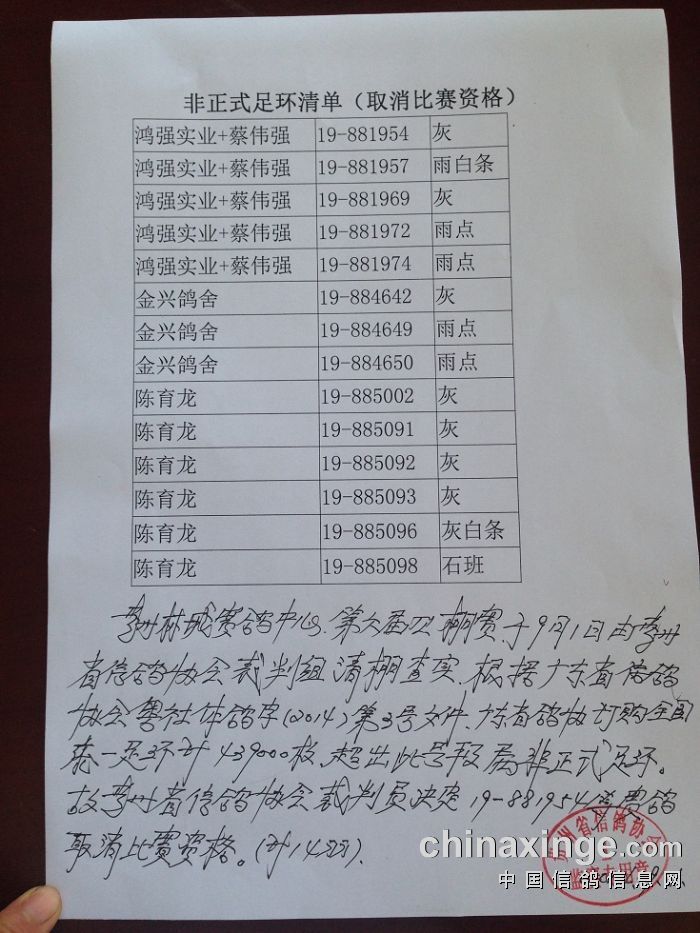 非正式足环清单（取消比赛资格）
鸿强实业+蔡伟强 19-881954 灰
鸿强实业+蔡伟强 19-881957 雨白条
鸿强实业+蔡伟强 19-881969 灰
鸿强实业+蔡伟强 19-881972 雨点
鸿强实业+蔡伟强 19-881974 雨点
金兴鸽舍 19-884642 灰
金兴鸽舍 19-884649 雨点
金兴鸽舍 19-884650 雨点
陈育龙 19-885002 灰
陈育龙 19-885091 灰
陈育龙 19-885092 灰
陈育龙 19-885093 灰
陈育龙 19-885096 灰白条
陈育龙 19-885098 石班
贵州林城赛鸽中心第六届四棚赛于9月1日由贵州
省信鸽协会裁判组清棚查实、根据广东省信鸽
协会粤社体鸽字(2014)第3号文件、广东省鸽协订购全国
统一足环计439000枚、超出此号段属非正式足环。
故贵州省信鸽协会裁判员决定19-881954等赛鸽
取消比赛资格。(计14羽).
贵州省信鸽协会
专用章
chinaxinge.com
中国信鸽信息网